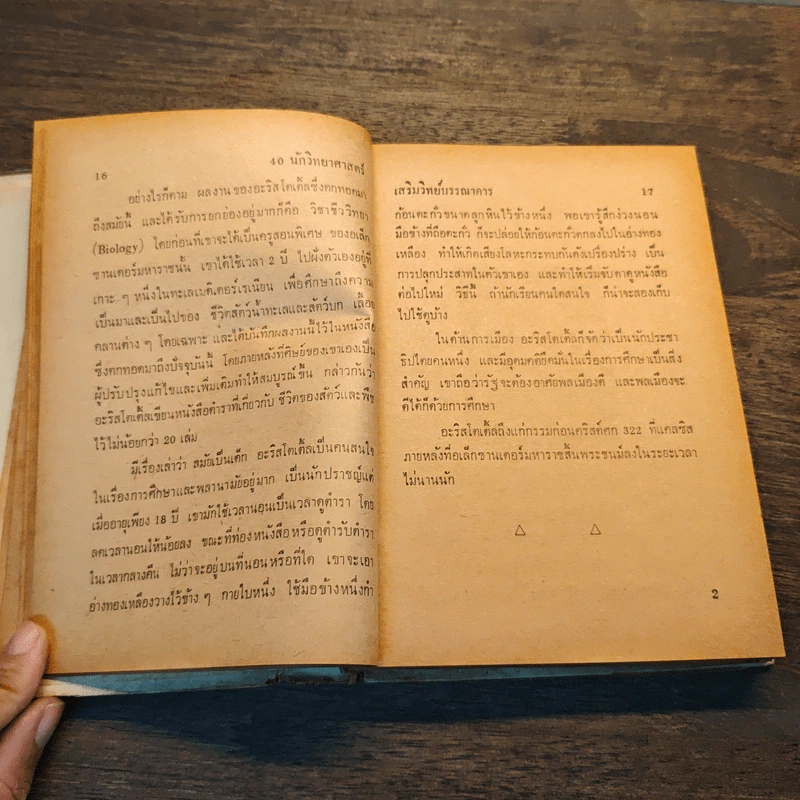 16
40 นักวิทยาศาสตร์
อย่างไรก็ตาม ผลงานของอะริสโตเติ้ลซึ่งตกทอดมา
ถึงสมัยนี้ และได้รับการยกย่องอยู่มากก็คือ วิชาชีววิทยา
(Biology) โดยก่อนที่เขาจะได้เป็นครูสอนพิเศษ ของอเล็ก
ซานเดอร์มหาราชนั้น เขาได้ใช้เวลา 2 ปี ไปฝังตัวอยู่ที่
เกาะ ๆ หนึ่งในทะเลเมดิเตอร์เรเนียน เพื่อศึกษาถึงความ
เป็นมาและเป็นไปของ ชีวิตสัตว์น้ำทะเลและสัตว์บก เลื้อย
คลานต่าง ๆ โดยเฉพาะ และได้บันทึกผลงานนี้ไว้ในหนังสือ
ซึ่งตกทอดมาถึงปัจจุบันนี้ โดยภายหลังที่ศิษย์ของเขาเองเป็น
ผู้ปรับปรุงแก้ไขและเพิ่มเติมทำให้สมบูรณ์ขึ้น กล่าวกันว่า
อะริสโตเติ้ลเขียนหนังสือตำราที่เกี่ยวกับ ชีวิตของสัตว์และพืช
ไว้ไม่น้อยกว่า 20 เล่ม
มีเรื่องเล่าว่า สมัยเป็นเด็ก อะริสโตเติ้ลเป็นคนสนใจ
ในเรื่องการศึกษาและพลานามัยอยู่มาก เป็นนักปราชญ์แต่
เมื่ออายุเพียง 18 ปี เขามักใช้เวลานอนเป็นเวลาดูตำรา โดย
ลดเวลานอนให้น้อยลง ขณะที่ท่องหนังสือหรือดูตำรับตำรา
ในเวลากลางคืน ไม่ว่าจะอยู่บนที่นอนหรือที่ใด เขาจะเอา
อ่างทองเหลืองวางไว้ข้าง ๆ กายใบหนึ่ง ใช้มือข้างหนึ่งกำ
เสริมวิทย์บรรณาคาร
17
ก้อนตะกั่วขนาดลูกหินไว้ข้างหนึ่ง พอเขารู้สึกง่วงนอน
มือข้างที่ถือตะกั่ว ก็จะปล่อยให้ก้อนตะกั่วตกลงไปในอ่างทอง
เหลือง ทำให้เกิดเสียงโลหะกระทบกันดังเปรื่องปร่าง เป็น
การปลุกประสาทในตัวเขาเอง และทำให้เริ่มจับตาดูหนังสือ
ต่อไปใหม่ วิธีนี้ ถ้านักเรียนคนใดสนใจ ก็น่าจะลองเก็บ
ไปใช้ดูบ้าง
ในด้านการเมือง อะริสโตเติ้ลก็จัดว่าเป็นนักประชา
ธิปไตยคนหนึ่ง และมีอุดมคติยึดมั่นในเรื่องการศึกษาเป็นสิ่ง
สำคัญ เขาถือว่ารัฐจะต้องอาศัยพลเมืองดี และพลเมืองจะ
ดีได้ก็ด้วยการศึกษา
อะริสโตเติ้ลถึงแก่กรรมก่อนคริสต์ศก 322 ที่แคลซิส
ภายหลังที่อเล็กซานเดอร์มหาราชสิ้นพระชนม์ลงในระยะเวลา
ไม่นานนัก
2